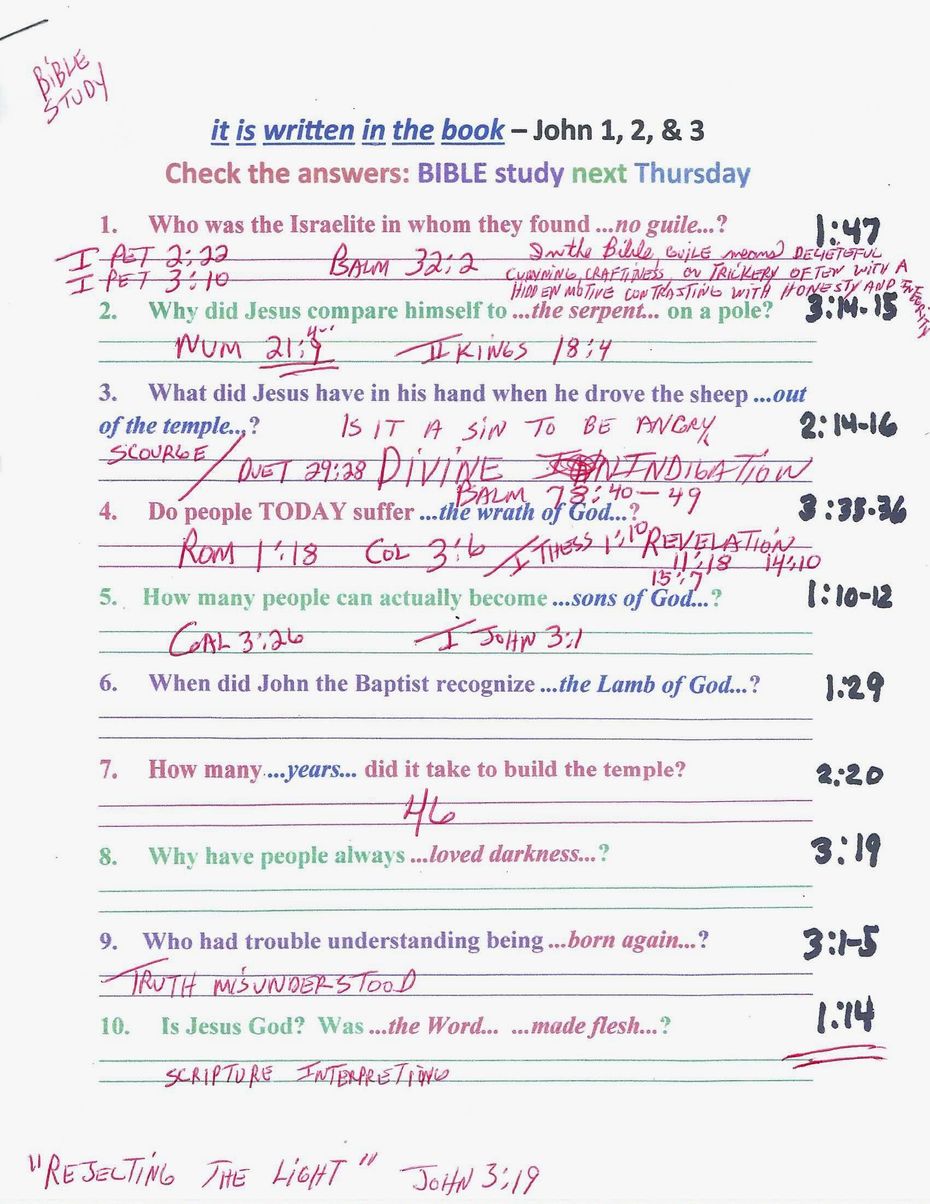 BIBLE
STUDY
it is written in the book – John 1, 2, & 3
Check the answers: BIBLE study next Thursday
1. Who was the Israelite in whom they found ...no guile...? 1:47
I PET 2:22 PSALM 32:2 In the Bible, GUILE means DECIETEFUL
I PET 3:10 CUNNING, CRAFTINESS, OR TRICKERY OFTEN WITH A
HIDDEN MOTIVE CONTRASTING WITH HONESTY AND INTEGRITY
2. Why did Jesus compare himself to ...the serpent... on a pole? 3:14-15
NUM 21:9 II KINGS 18:4
3. What did Jesus have in his hand when he drove the sheep ...out
of the temple...? IS IT A SIN TO BE ANGRY 2:14-16
SCOURGE / DUET 29:28 DIVINE INDIGATION
PSALM 78:40-49
4. Do people TODAY suffer ...the wrath of God...? 3:35-36
ROM 1:18 COL 3:6 I THESS 1:10 REVELATION
11:18 14:10
15:7
5. How many people can actually become ...sons of God...? 1:10-12
GAL 3:26 I JOHN 3:1
6. When did John the Baptist recognize ...the Lamb of God...? 1:29
7. How many ...years... did it take to build the temple? 2:20
46
8. Why have people always ...loved darkness...? 3:19
9. Who had trouble understanding being ...born again...? 3:1-5
TRUTH MISUNDERSTOOD
10. Is Jesus God? Was ...the Word... ...made flesh...? 1:14
SCRIPTURE INTERPRETING
"REJECTING THE LIGHT" JOHN 3:19